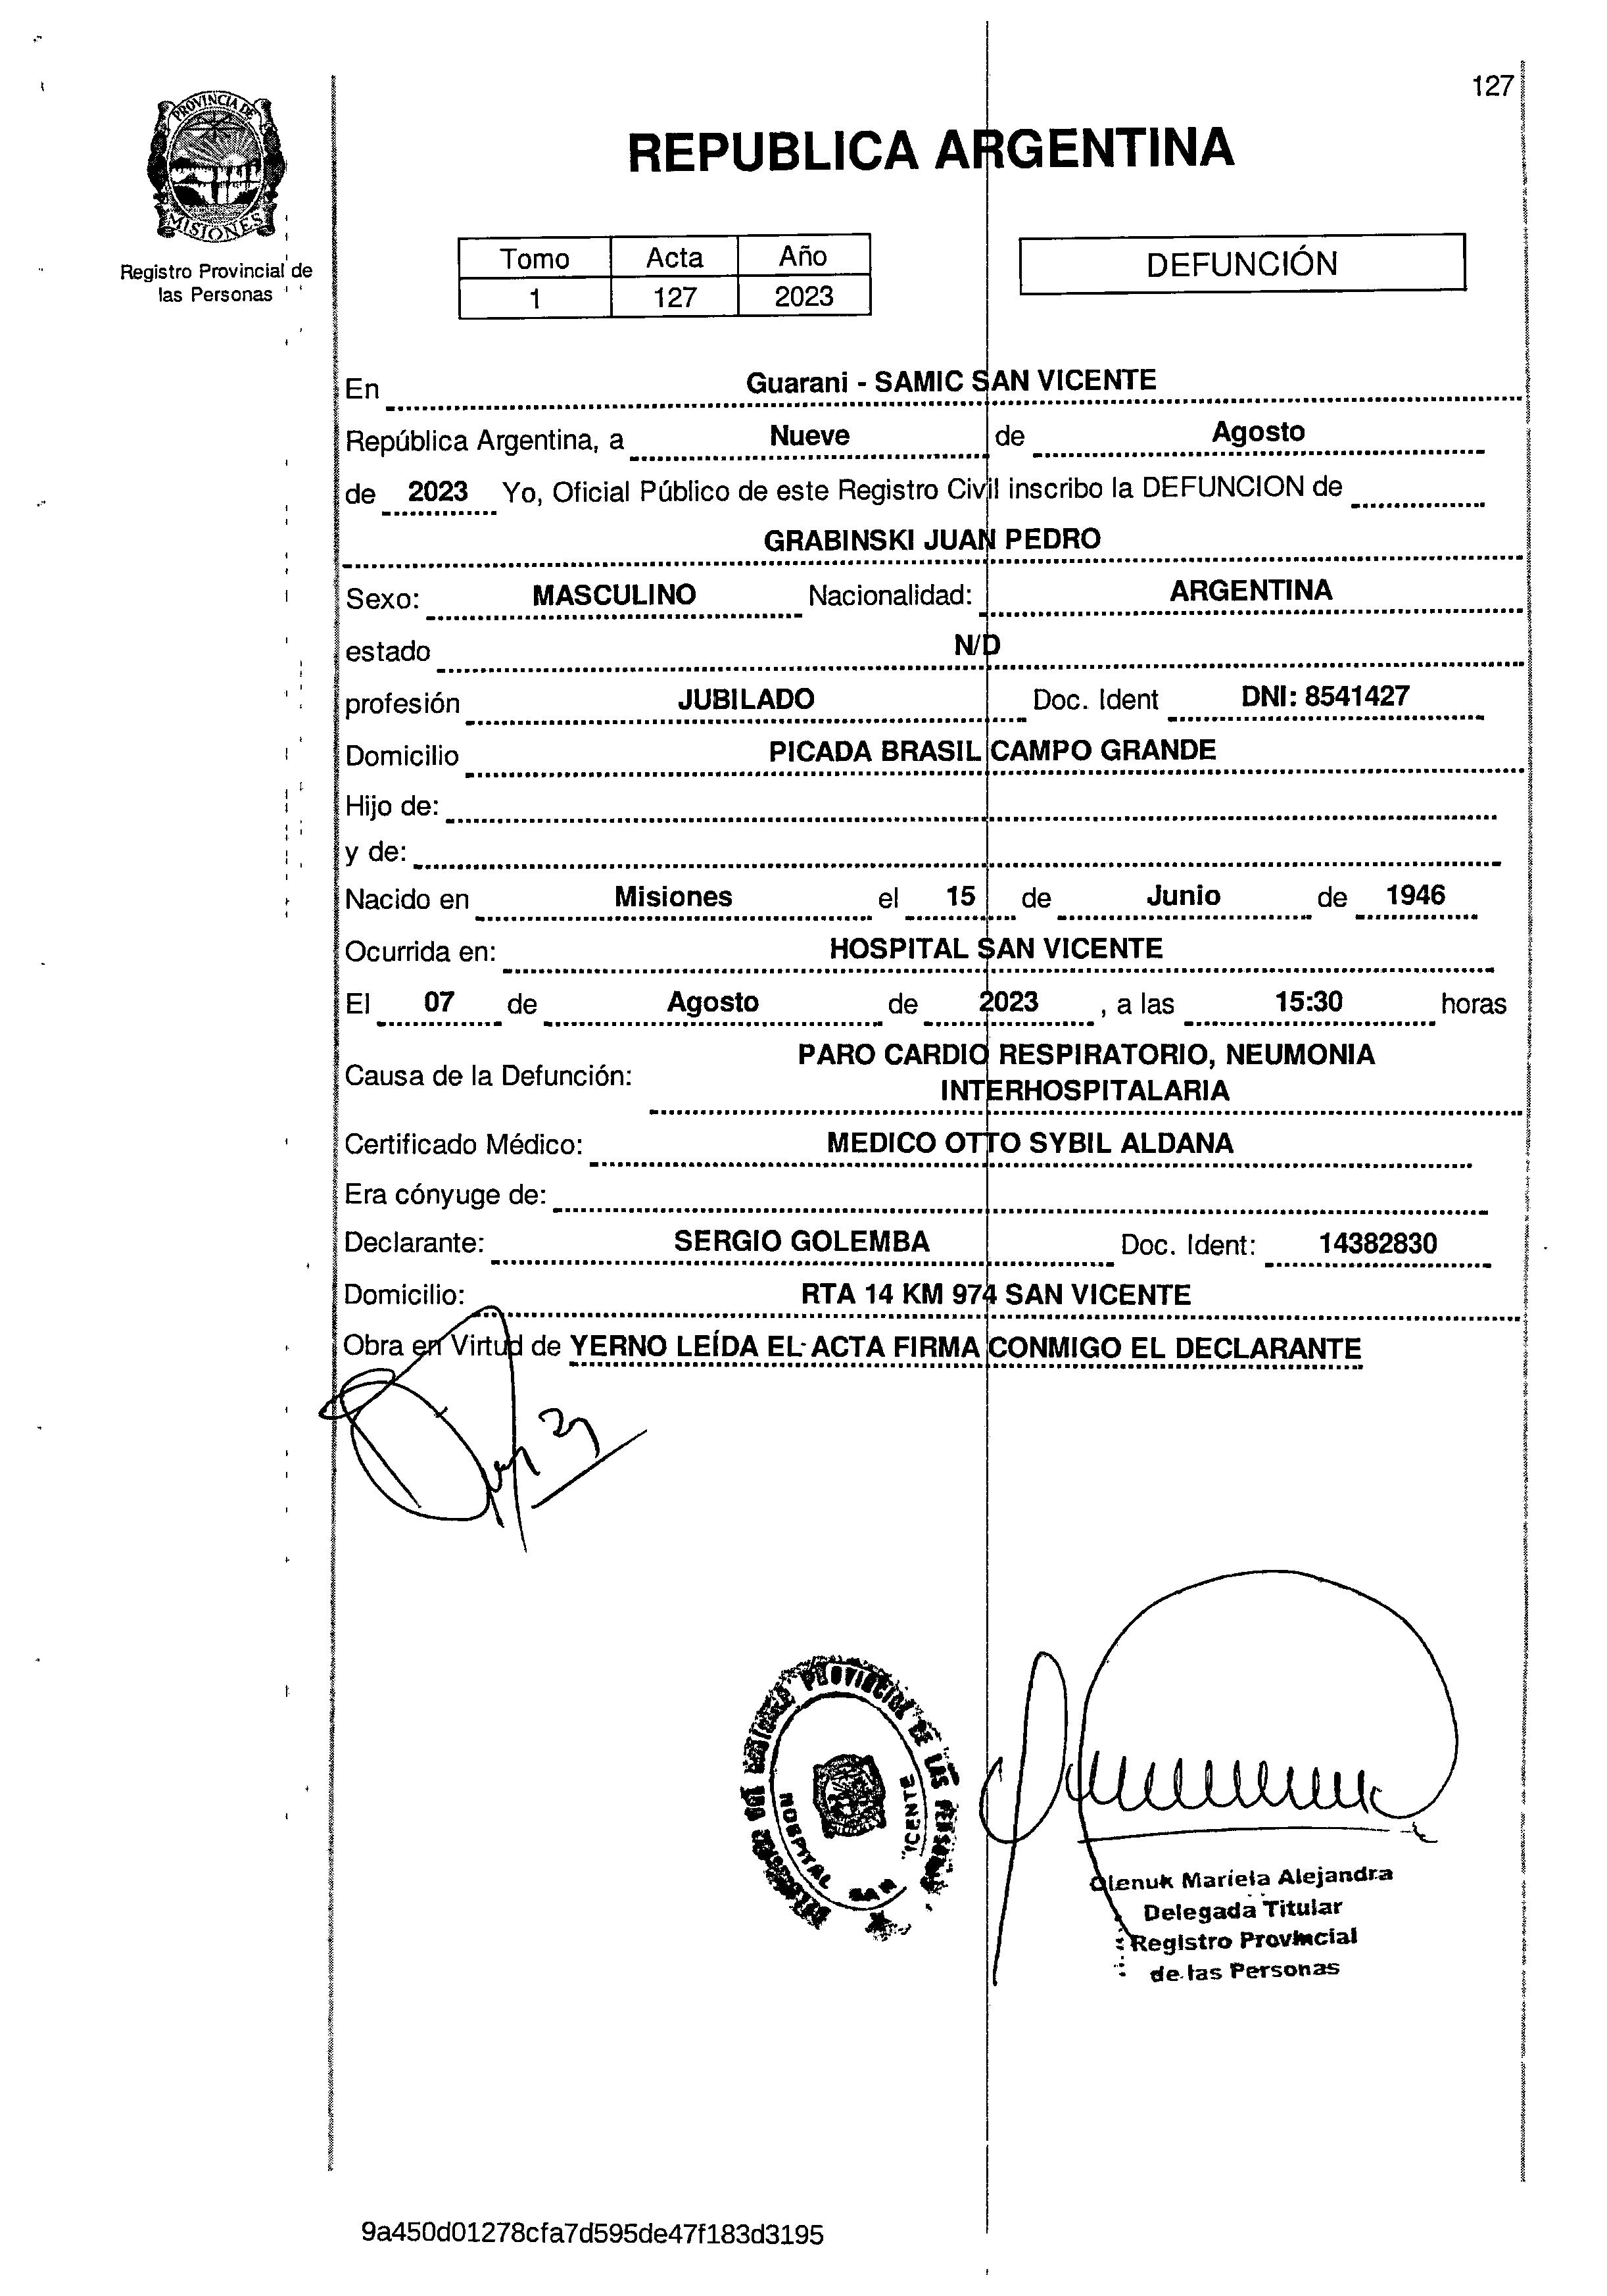 127
PROVINCIA DE
MISIONES
Registro Provincial de
las Personas
REPUBLICA ARGENTINA
Tomo Acta Año
1 127 2023
DEFUNCIÓN
En Guarani - SAMIC SAN VICENTE
República Argentina, a Nueve de Agosto
de 2023 Yo, Oficial Público de este Registro Civil inscribo la DEFUNCION de
GRABINSKI JUAN PEDRO
Sexo: MASCULINO Nacionalidad: ARGENTINA
estado N/D
profesión JUBILADO Doc. Ident DNI: 8541427
Domicilio PICADA BRASIL CAMPO GRANDE
Hijo de:
y de:
Nacido en Misiones el 15 de Junio de 1946
Ocurrida en: HOSPITAL SAN VICENTE
El 07 de Agosto de 2023 , a las 15:30 horas
Causa de la Defunción: PARO CARDIO RESPIRATORIO, NEUMONIA
INTERHOSPITALARIA
Certificado Médico: MEDICO OTTO SYBIL ALDANA
Era cónyuge de:
Declarante: SERGIO GOLEMBA Doc. Ident: 14382830
Domicilio: RTA 14 KM 974 SAN VICENTE
Obra en Virtud de YERNO LEÍDA EL ACTA FIRMA CONMIGO EL DECLARANTE
PROVINCIAL DE LAS
HOSPITAL SAN VICENTE
Olenuk Mariela Alejandra
Delegada Titular
Registro Provincial
de las Personas
9a450d01278cfa7d595de47f183d3195